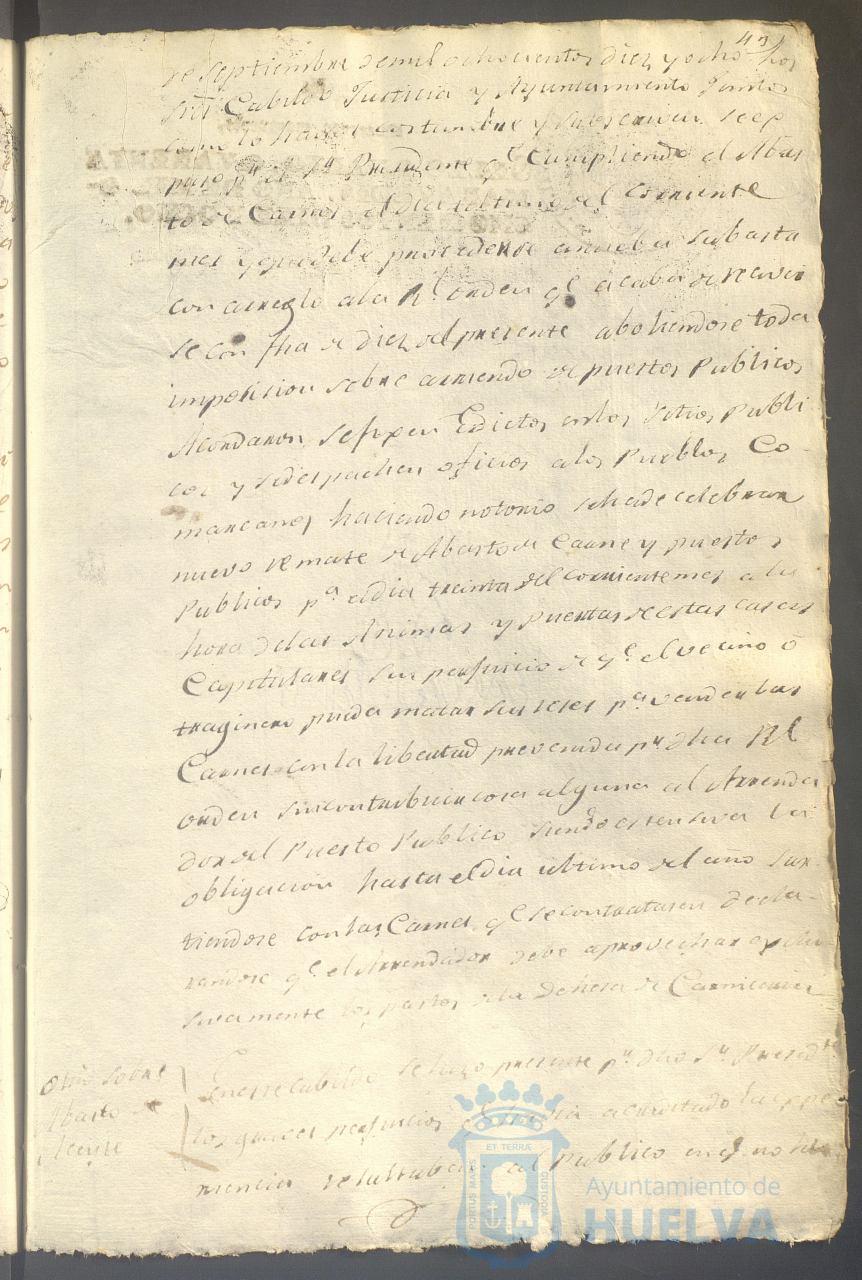 43
de septiembre de mil ochocientos diez y ocho los
Sres Cabildo Justicia y Ayuntamiento Juntos
como lo han de costumbre y se exp
puso pr el Sr Presidente qe cumpliendo el Abas
to de Carnes el dia ultimo del corriente
mes y que debe procederse a nueba subasta
con arreglo a la Rl orden qe acaba de recivir
se con fha de diez del presente aboliendose toda
imposicion sobre arriendo de puestos Publicos
Acordaron se fixen Edictos en los sitios Publi
cos y se despachen oficios a los Pueblos Co-
marcanos haciendo notorio se ha de celebrar
nuevo remate de Abasto de Carne y puestos
Publicos pa el dia treinta del corriente mes a la
hora de las Animas y puertas de estas casas
Capitulares sin perjuicio de qe el vecino ó
traginero pueda matar sus reses pa vender las
Carnes con la libertad prevenida pr dha Rl
orden sin contribuir cosa alguna al Arrenda
dor del Puesto Publico siendo estensiva la
obligacion hasta el dia ultimo del año sur
tiendose con las Carnes qe se contratasen decla-
randose qe el Arrendador debe aprovechar exclu-
sivamente los pastos de la Dehesa de Carniceria
Otro sobre
Abasto de
Aceyte
En este Cabildo se hizo presente pr dho Sr Presidte
los graves perjuicios qe havia acreditado la expe
riencia resultaban al publico en qe no
ET TERRÆ
PORTUS MARIS
CUSTODIA
Ayuntamiento de
HUELVA